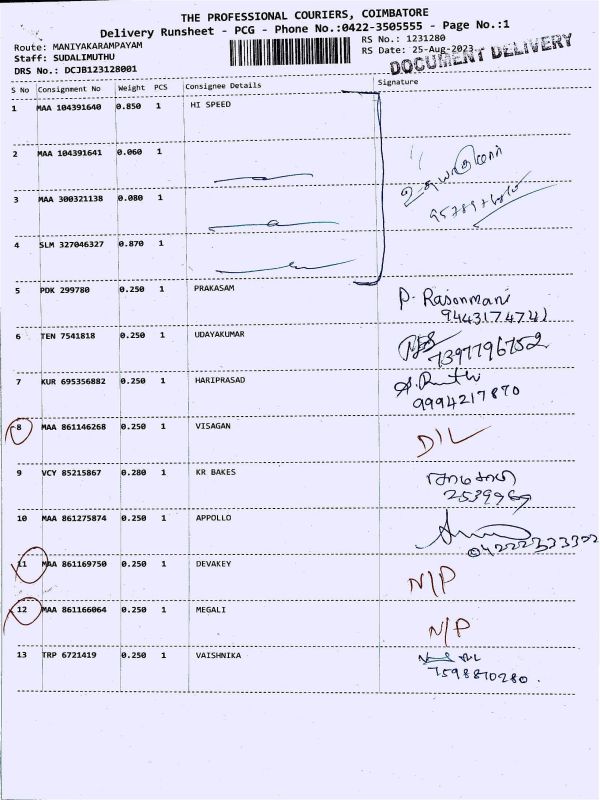 THE PROFESSIONAL COURIERS, COIMBATORE
Delivery Runsheet - PCG - Phone No.:0422-3505555 - Page No.:1
Route: MANIYAKARAMPAYAM RS No.: 1231280
Staff: SUDALIMUTHU RS Date: 25-Aug-2023
DOCUMENT DELIVERY
DRS No.: DCJB123128001
S No Consignment No Weight PCS Consignee Details Signature
1 MAA 104391640 0.850 1 HI SPEED
2 MAA 104391641 0.060 1
3 MAA 300321138 0.080 1
4 SLM 327046327 0.870 1
5 PDK 299780 0.250 1 PRAKASAM P. Rasonmani
9443174741
6 TEN 7541818 0.250 1 UDAYAKUMAR
7397796752
7 KUR 695356882 0.250 1 HARIPRASAD
9994217870
8 MAA 861146268 0.250 1 VISAGAN D/L
9 VCY 85215867 0.280 1 KR BAKES
2539969
10 MAA 861275874 0.250 1 APPOLLO
04222333322
11 MAA 861169750 0.250 1 DEVAKEY N/P
12 MAA 861166064 0.250 1 MEGALI N/P
13 TRP 6721419 0.250 1 VAISHNIKA
7598810280.